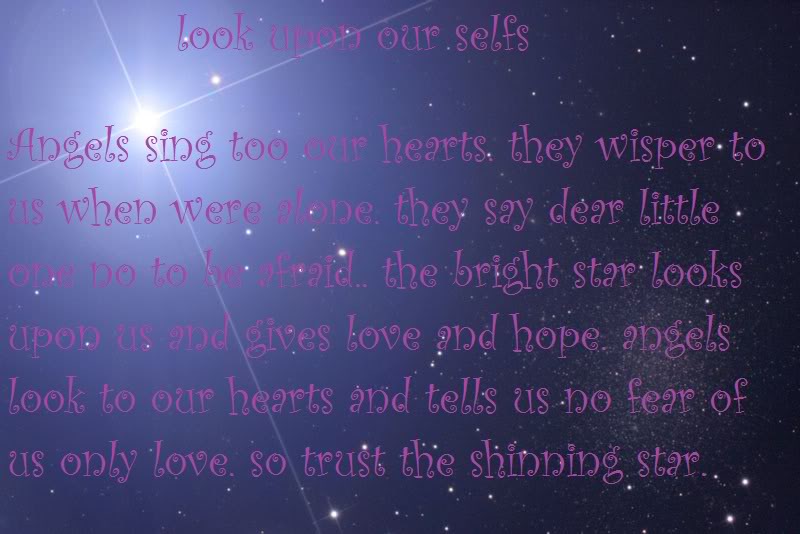 look upon our selfs
Angels sing too our hearts. they wisper to
us when were alone. they say dear little
one no to be afraid.. the bright star looks
upon us and gives love and hope. angels
look to our hearts and tells us no fear of
us only love. so trust the shinning star.